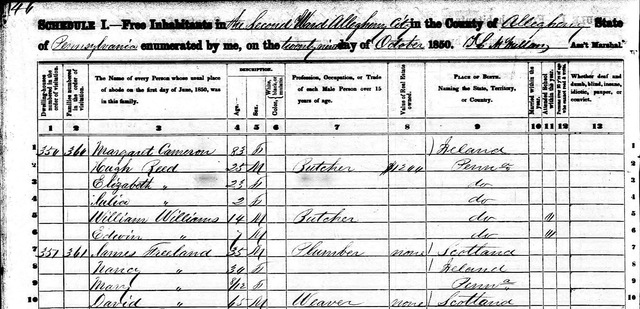 146
SCHEDULE I.—Free Inhabitants in the Second Ward Allegheny City in the County of Allegheny State
of Pennsylvania enumerated by me, on the day of October 1850. Ass't Marshal.
Dwelling-houses numbered in the order of visitation.
Families numbered in the order of visitation.
The Name of every Person whose usual place of abode on the first day of June, 1850, was in this family.
DESCRIPTION.
Age.
Sex.
Color,
Profession, Occupation, or Trade of each Male Person over 15 years of age.
Value of Real Estate owned.
PLACE OF BIRTH. Naming the State, Territory, or Country.
Married within the year.
Attended School within the year.
Whether deaf and dumb, blind, insane, idiotic, pauper, or convict.
1 2 3 4 5 6 7 8 9 10 11 12 13
1 350 360 Margaret Cameron 83 F Ireland 1
2 Hugh Reed 25 M Butcher $1200 Penna 2
3 Elizabeth " 23 F do 3
4 2 F do 4
5 William Williams 14 M Butcher do 5
6 Edwin " 7 M do 6
7 351 361 James Freeland 35 M Plumber none Scotland 7
8 Nancy " 30 F Ireland 8
9 Mary " F Penna 9
10 David " 65 M Weaver none Scotland 10